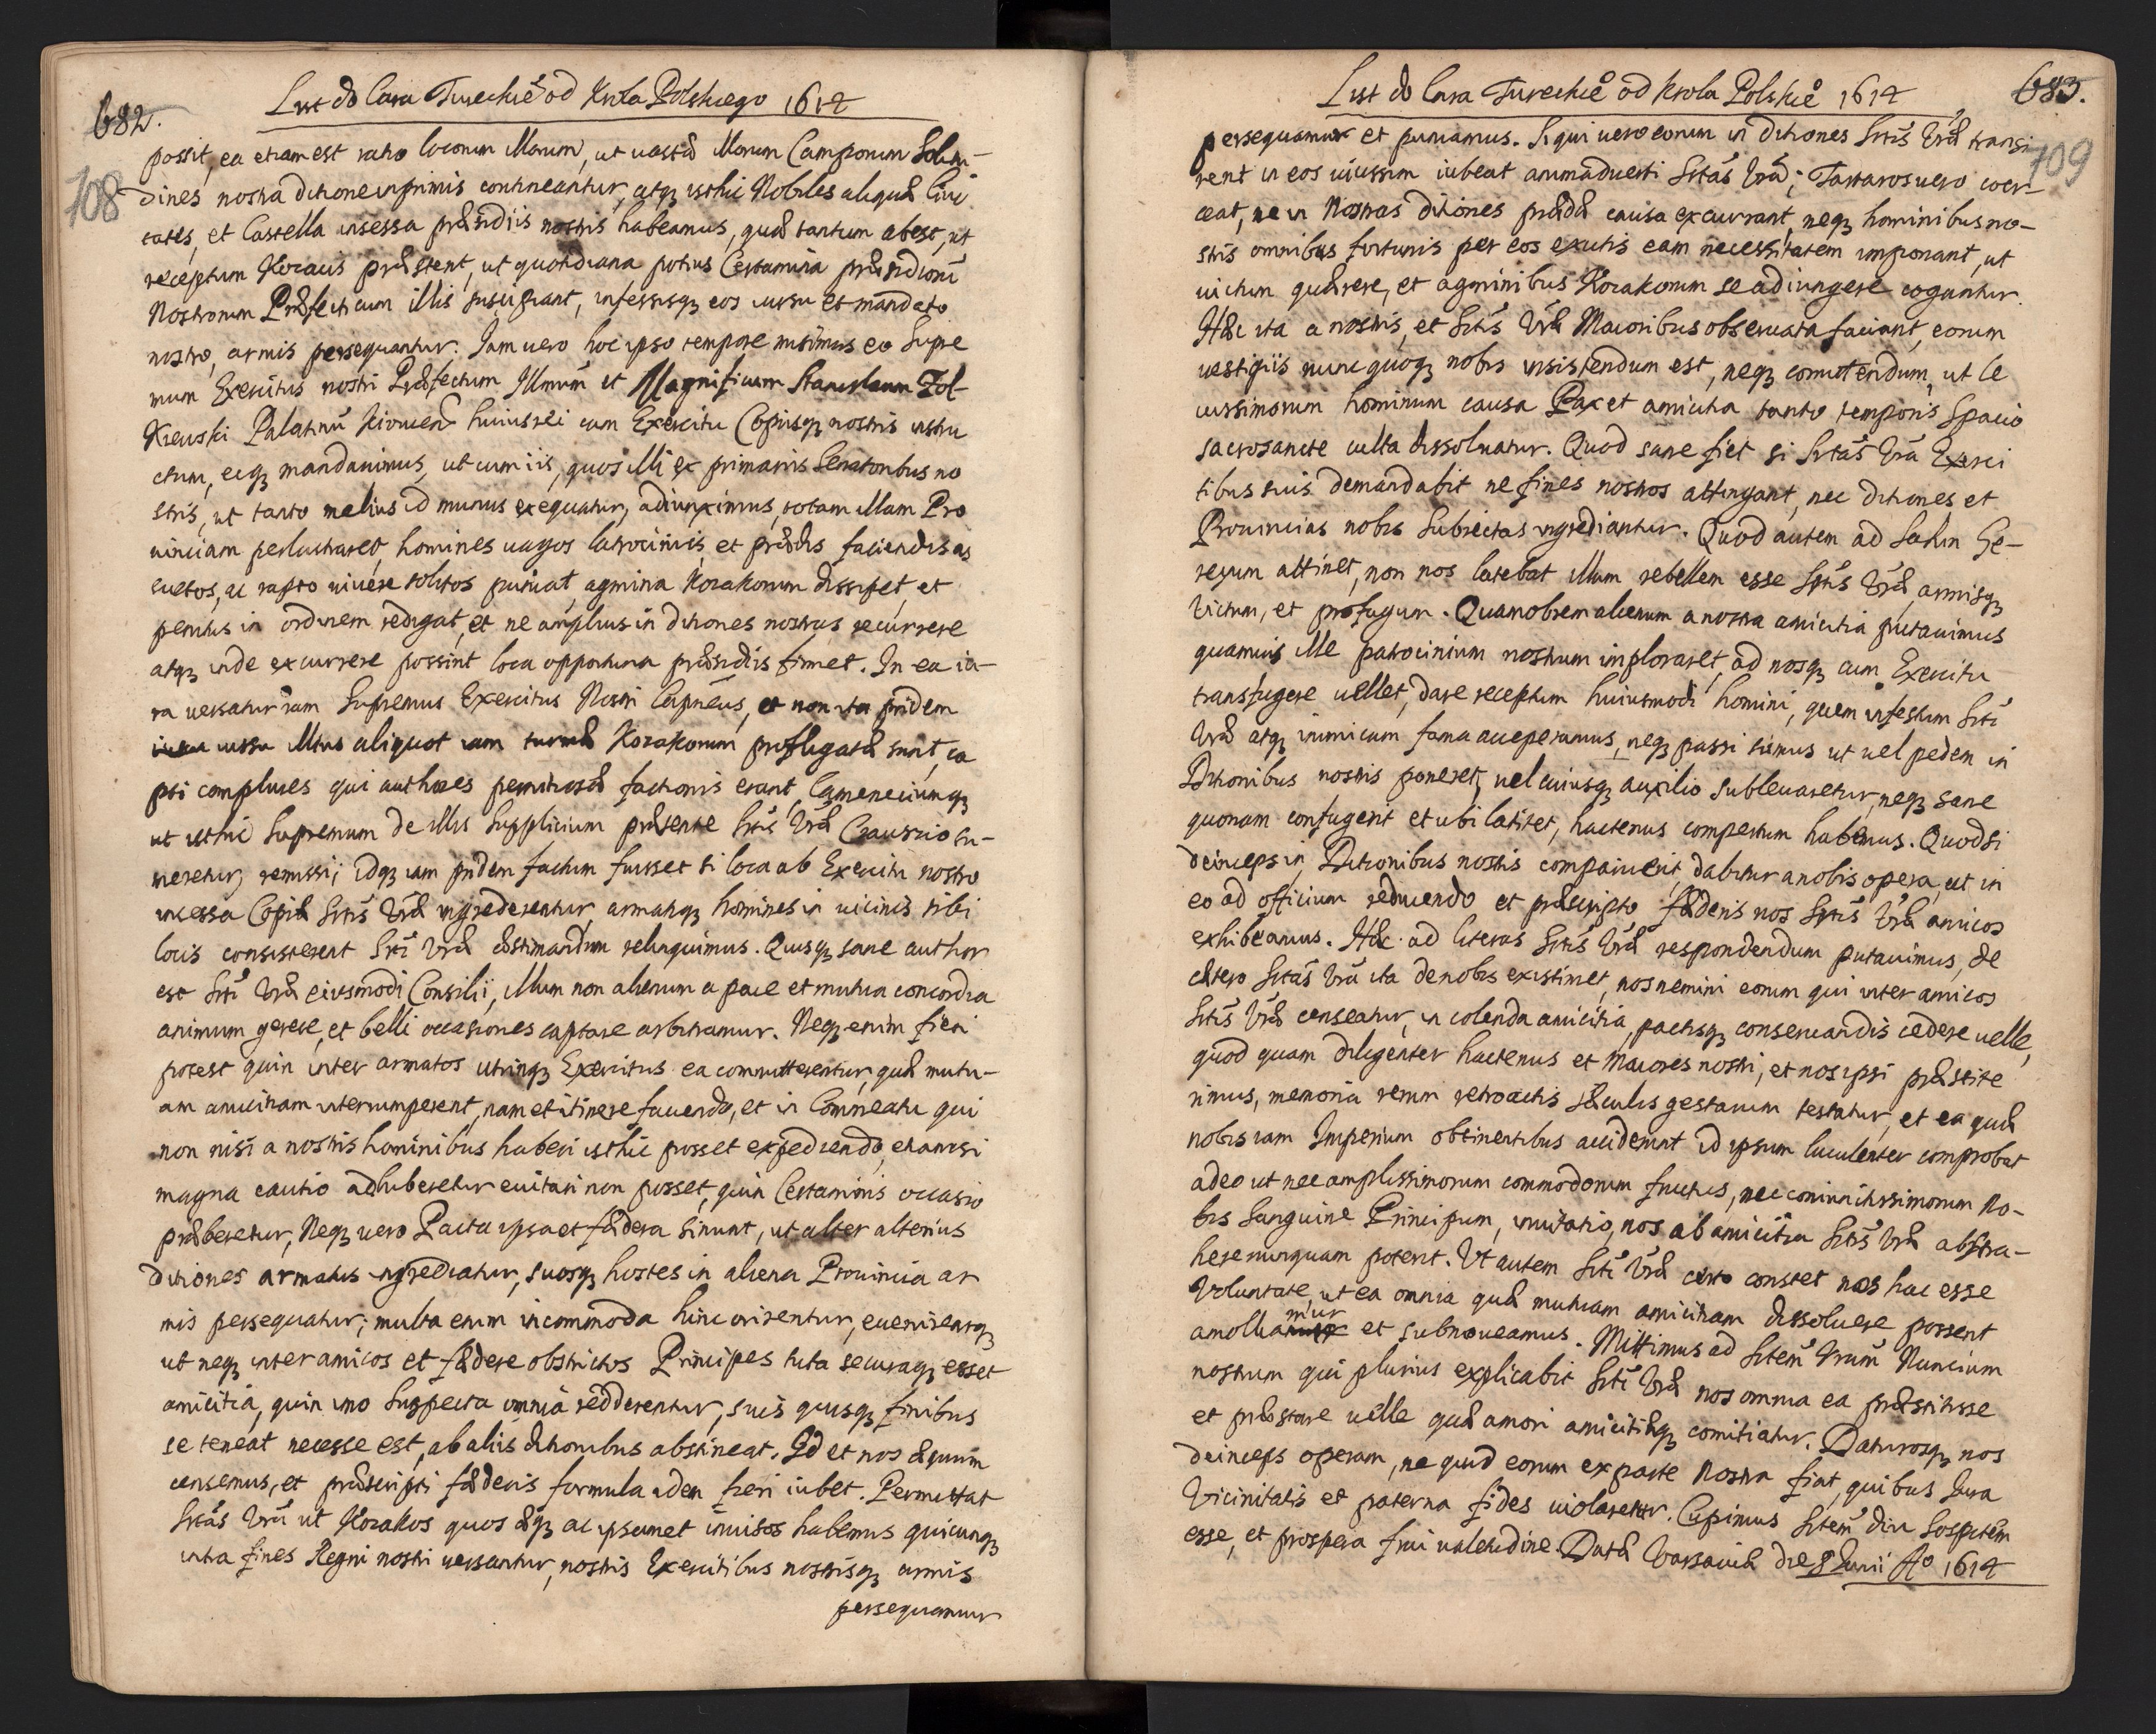 682.
List do Cara Tureckiē od Krola Polskiego 1614
708
possit, ea etiam est ratio locorum illorum, ut vastæ illorum Camporum Solitu-
dines nostra ditione inprimis contineantur, atqȝ isthic Nobiles aliquæ Civi
tates, et Castella insessa præsidiis nostris habeamus, quæ tantum abest, ut
receptum Kozacis præstent, ut quotidiana potius Certamina præsidiorū
Nostrorum Præfecti cum illis suscipiant, infessisqȝ eos iussu et mandato
nostro, armis persequantur. Iam vero hoc ipso tempore misimus eo Supre
mum Exercitus nostri Præfectum Illmum et Magnificum Stanislaum Zol-
kiewski Palatinū Kiouien huius rei cum Exercitu Copiisqȝ nostris instru
ctum, eiqȝ mandavimus, ut cum iis, quos illi ex primariis Senatoribus no
stris, ut tanto melius id munus exequatur, adiunximus, totam illam Pro
vinciam perlustraret, homines vagos latrociniis, et prædis faciendis as
suetos, ac rapto vivere solitos puniat, agmina Kozakorum dissipet, et
penitus in ordinem redigat, et ne amplius in ditiones nostras recurrere
atqȝ inde excurrere possint loca opportuna præsidiis firmet. In ea ia-
ra versatur iam Supremus Exercitus Nostri Capneus, et non ita pridem
iussu illius aliquot iam turmæ Kozakorum profligatæ sunt, ca
pti complures qui authores pernitiosæ factionis erant, Cameneciumqȝ
ut isthic supremum de illis supplicium præsente Srtis Vræ Czauszio su-
meretur, remissi; idqȝ iam pridem factum fuisset si loca ab Exercitu nostro
incessa Copiæ Srtis Vræ ingrederentur, armatiqȝ homines in vicinis tibi
locis consisterent Srti Vræ æstimandum relinquimus. Quisqȝ sane author
est Srti Vræ eiusmodi Consilii, illum non alienum a pace et mutua concordia
animum gerere, et belli occasiones captare arbitramur. Neqȝ enim fieri
potest quin inter armatos utrinqȝ Exercitus ea committerentur, quæ mutu-
am amicitiam interrumperent, nam et itinere faciendo, et in Commeatu qui
non nisi a nostris hominibus haberi isthic posset expediendo, etiamsi
magna cautio adhiberetur evitari non posset, quin Certaminis occasio
præberetur, Neqȝ vero Pacta ipsa et fædera sinunt, ut alter alterius
ditiones armatus ingrediatur, suosqȝ hostes in aliena Provincia ar
mis persequatur; multa enim incommoda hinc orirentur, evenirentqȝ
ut neqȝ inter amicos et fædere obstrictos Principes tuta securaqȝ esset
amicitia, quin imo suspecta omnia redderentur, suis quisqȝ finibus
se teneat necesse est, ab aliis ditionibus abstineat. Id et nos æquum
censemus, et præscripti fæderis formula idem fieri iubet. Permittat
Srtas Vrā ut Kozakos quos æqȝ ac ipsamet invisos habemus quicunqȝ
intra fines Regni nostri versantur, nostris Exercitibus nostrisqȝ armis
persequamur
List do Cara Tureckiē od Krola Polskiē 1614
683.
709
persequamur et puniamus. Si qui vero eorum in ditiones Srtis Vræ transi
rent in eos vicissim iubeat animadverti Srtas Vra; Tartaros vero coer-
ceat, ne in Nostras ditiones prædæ causa excurrant, neqȝ hominibus no-
stris omnibus fortunis per eos exutis eam necessitatem imponant, ut
victum quærere, et agminibus Kozakorum se adiungere cogantur.
Hæc ita a nostris, et Srtis Vræ Maioribus observata faciant, eorum
vestigiis nunc quoqȝ nobis insistendum est, neqȝ comittendum, ut le
vissimorum hominum causa Pax et amicitia tanto temporis spacio
sacrosancte culta dissolvatur. Quod sane fiet si Srtas Vra Exerci
tibus suis demandabit ne fines nostros attingant, nec ditiones, et
Provincias nobis subiectas ingrediantur. Quod autem ad Sahin Ge-
reyum attinet, non nos latebat illum rebellem esse Srtis Vræ, armisqȝ
victum, et profugum. Quamobrem alienum a nostra amicitia putavimus
quamvis ille patrocinium nostrum imploraret, ad nosqȝ cum Exercitu
transfugere vellet, dare receptum huiusmodi homini, quem infestum Srti
Vræ atqȝ inimicum fama acceperamus, neqȝ passi sumus ut vel pedem in
Ditionibus nostris poneret, vel cuiusqȝ auxilio sublevaretur, neqȝ sane
quonam confugerit et ubi latitet, hactenus compertum habemus. Quodsi
deinceps in Ditionibus nostris comparuerit, dabitur a nobis opera, ut in
eo ad officium reducendo et præscripto fæderis nos Srtis Vræ amicos
exhibeamus. Hæc ad literas Srtis Vræ respondendum putavimus, de
cætero Srtas Vra ita de nobis existimet, nos nemini eorum qui inter amicos
Srtis Vræ censeatur, in colenda amicitia, pactisqȝ conservandis cedere velle,
quod quam diligenter hactenus et maiores nostri, et nos ipsi præstite
rimus, memoria rerum retroactis sæculis gestarum testatur, et ea quæ
nobis iam Imperium obtinentibus acciderunt id ipsum luculenter comprobat
adeo ut nec amplissimorum commodorum fructus, nec coniunctissimorum No-
bis Sanguine Principum, invitatio, nos ab amicitia Srtis Vræ abstra-
here nunquam poterit. Ut autem Srti Vræ certo constet nos hac esse
Voluntate, ut ea omnia quæ mutuam amicitiam dissolvere possent
amolliamur et submoveamus. Mittimus ad Srtem Vram Nuncium
nostrum qui plurius explicabit Srti Vræ nos omnia ea præstitisse
et præstare velle quæ amori amicitiæqȝ comitiatur. Daturosqȝ nos
deinceps operam, ne quid eorum ex parte Nostra fiat, quibus Iura
Vicinitatis et paterna fides violaretur. Cupimus Srtem diu Sospitem
esse, et prospera frui valetudine. Datæ Varsaviæ die 8 Iunii Aº 1614